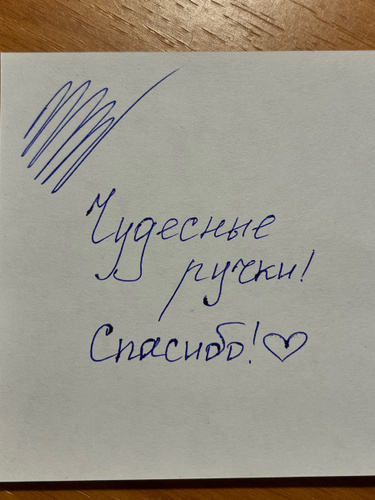 Чудесные
ручки!
Спасибо!♡